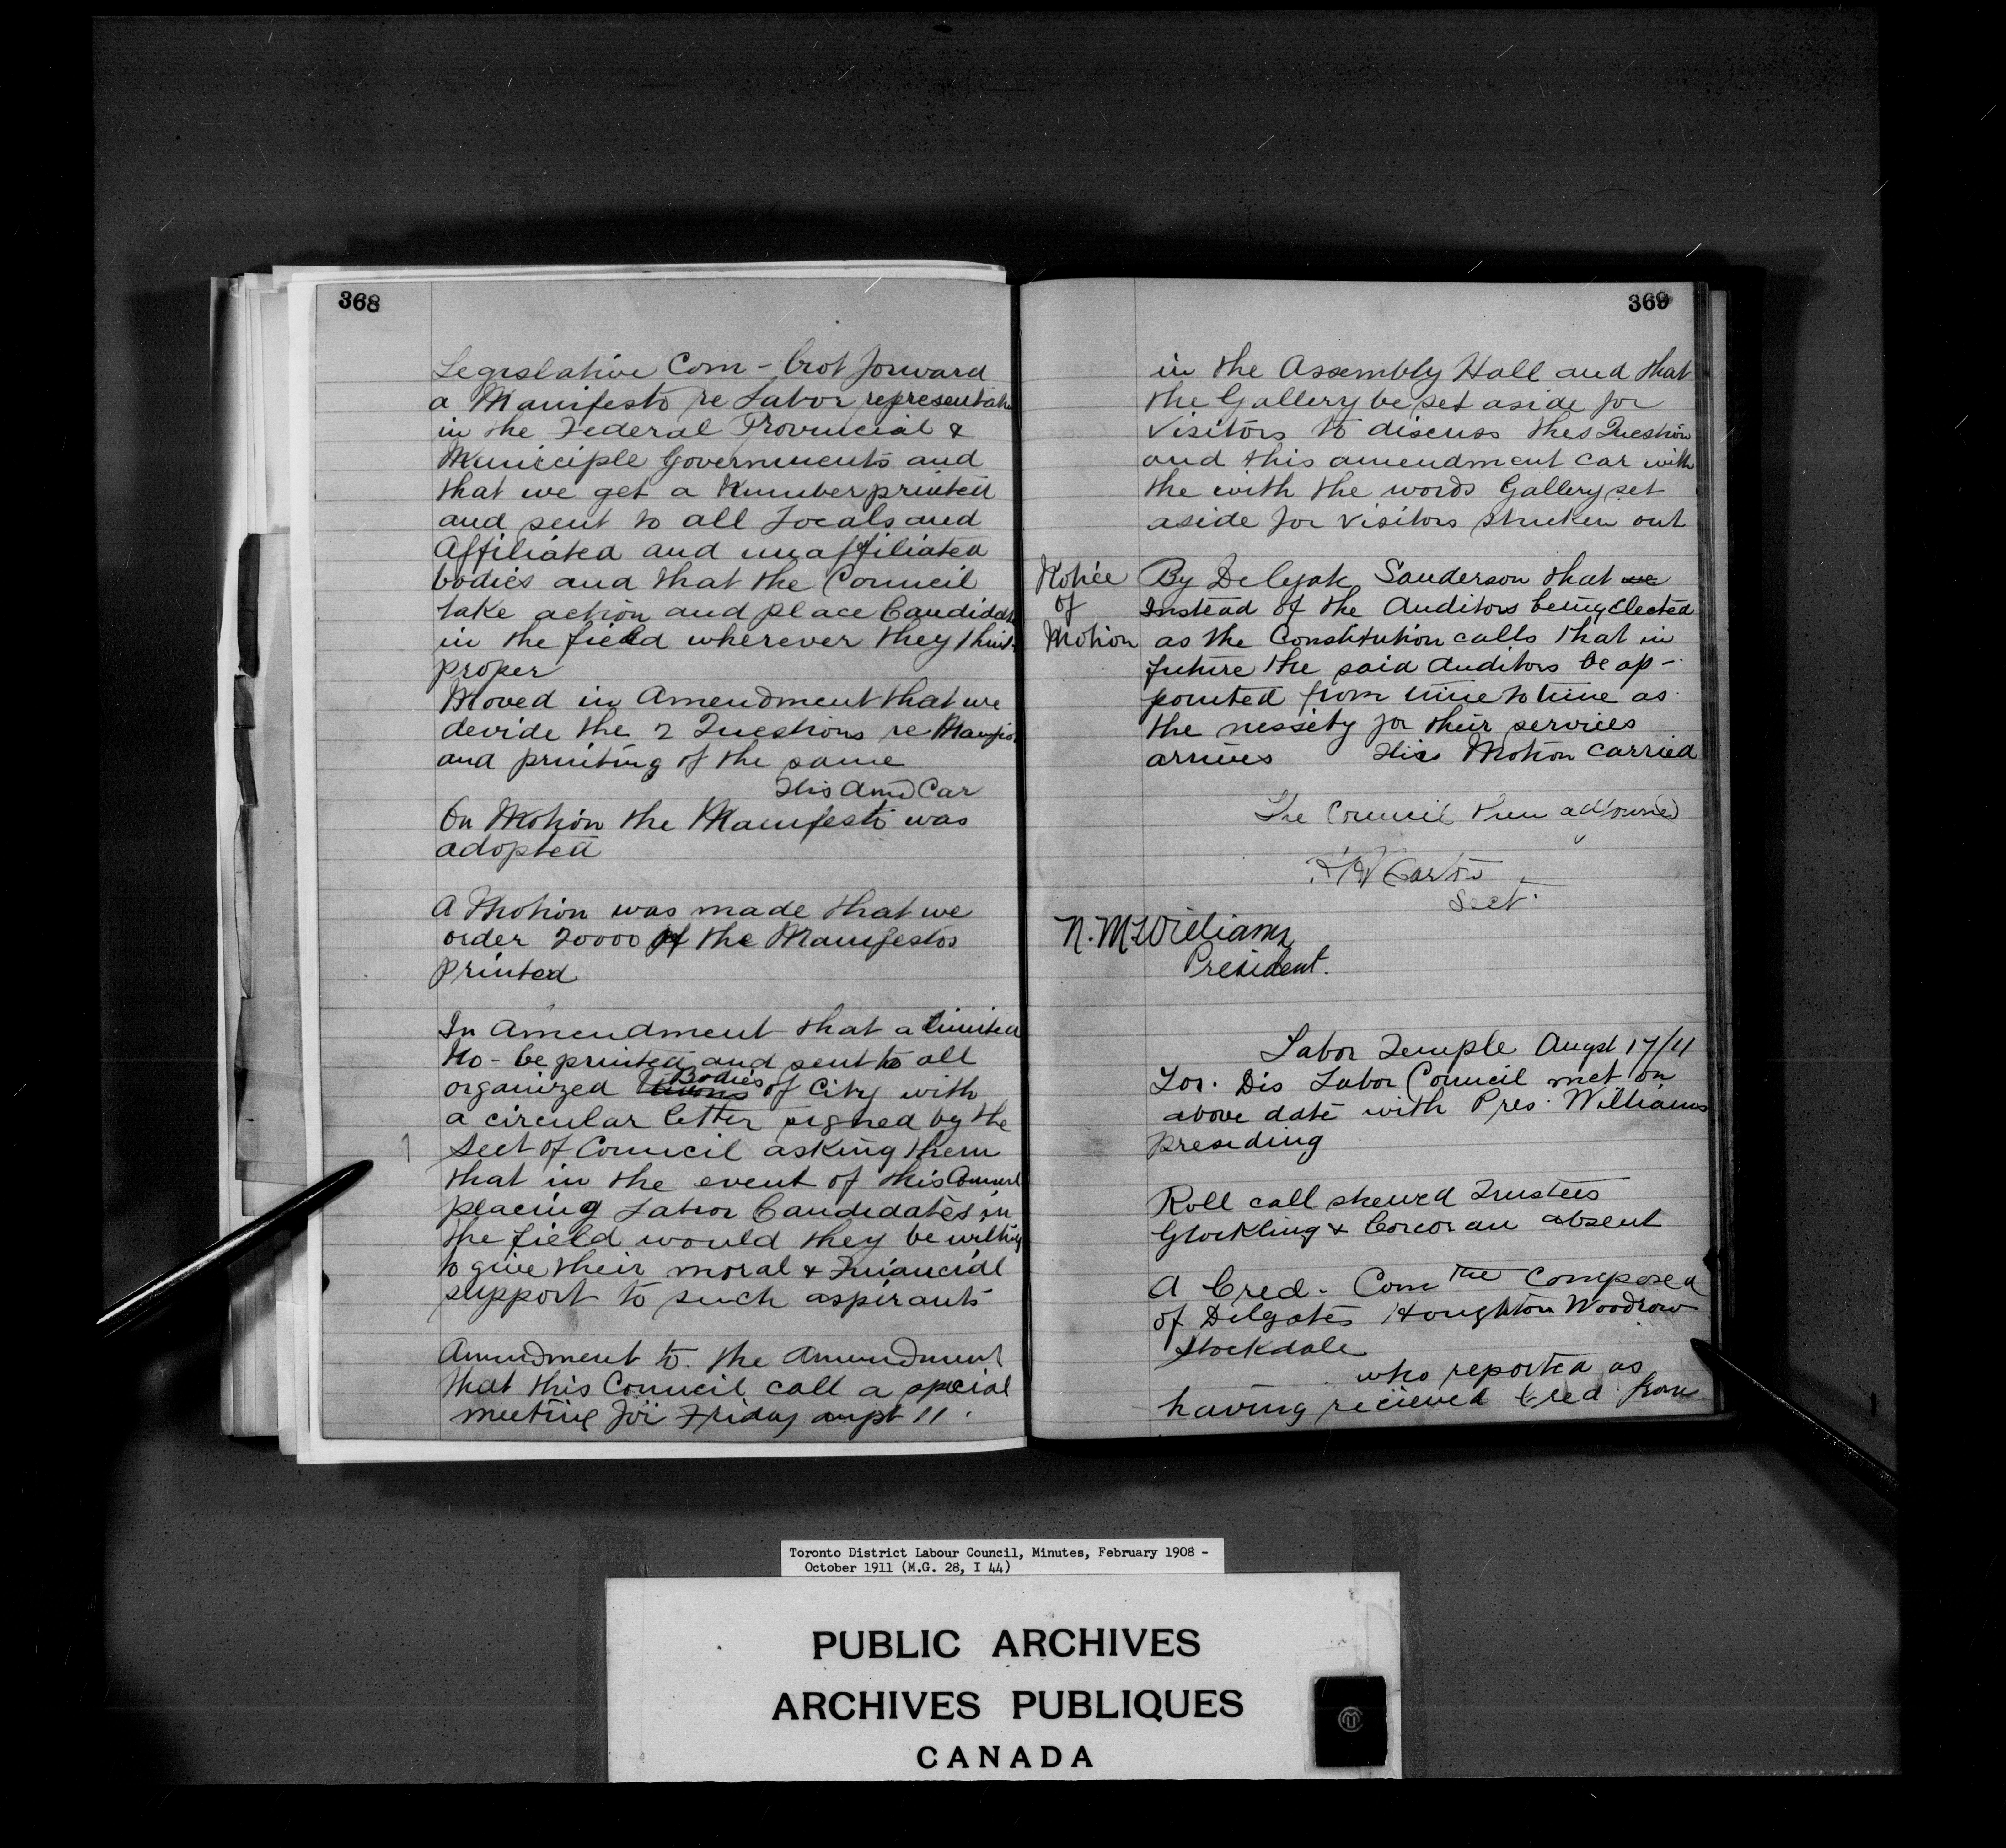 368
Legislative Com - brot forward
a Manifesto re Labor representation
in the Federal Provincial &
Municiple Governments and
that we get a Number printed
and sent to all Locals and
Affiliated and unaffiliated
bodies and that the Council
take action and place Candidates
in the field wherever they think
proper
Moved in Amendment that we
devide the 2 Questions re Manifesto
and printing of the same
This Amd Car
On Motion the Manifesto was
adopted
A Motion was made that we
order 20000 of the Manifestos
printed
In Amendment that a limited
No - be printed and sent to all
organized Unions Bodies of City with
a circular letter signed by the
Sect of Council asking them
that in the event of this Council
placing Labor Candidates in
the field would they be willing
to give their moral & Financial
support to such aspirants
Amendment to the Amendment
that this Council call a special
meeting for Friday augst 11
369
in the Assembly Hall and that
the Gallery be set aside for
Visitors to discuss this Question
and this amendment car with
the with the words Gallery set
aside for Visitors struken out
Notice
of
Motion
By Delgate Sanderson that we
Instead of the Auditors being Elected
as the Constitution calls that in
future the said Auditors be ap-
pointed from time to time as
the nessety for their services
arrives This Motion Carried
The Council then adjourned
Sect.
President.
Labor Temple Augst 17/11
Tor. Dis Labor Council met on
above date with Pres. Williams
presiding
Roll call shewed Trustees
Glockling & Corcoran absent
A Cred. Com tte Composed
of Delgates Houghton Woodrow
Stockdale
who reported as
having recieved Cred. from
Toronto District Labour Council, Minutes, February 1908 -
October 1911 (M.G. 28, I 44)
PUBLIC ARCHIVES
ARCHIVES PUBLIQUES
CANADA